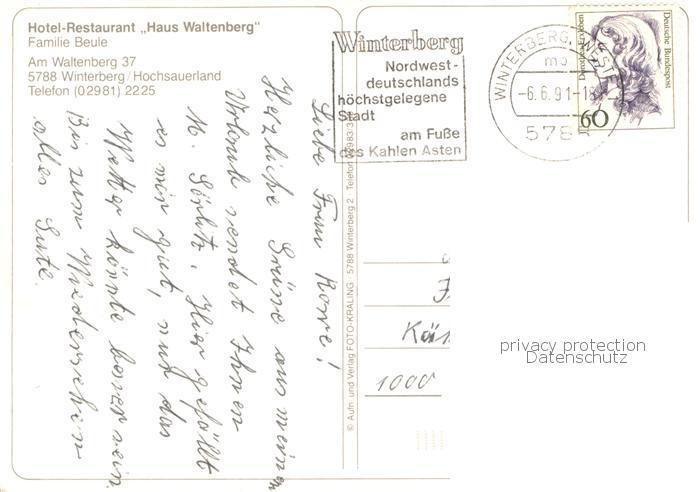 Hotel-Restaurant „Haus Waltenberg"
Familie Beule
Am Waltenberg 37
5788 Winterberg/Hochsauerland
Telefon (02981) 2225
Liebe Frau Rowe!
Herzliche Grüße aus meinem
Urlaub sendet Ihnen
M. Görlitz. Hier gefällt
es mir gut, nur das
Wetter könnte besser sein.
Bis zum Wiedersehen
alles Gute.
© Aufn. und Verlag FOTO-KRALING 5788 Winterberg 2 Telefon
Winterberg
Nordwest-
deutschlands
höchstgelegene
Stadt
am Fuße
des Kahlen Asten
WINTERBERG, WESTF
mb
-6.6.91-18
5788
Dorothea Erxleben
Deutsche Bundespost
60
1000
privacy protection
Datenschutz